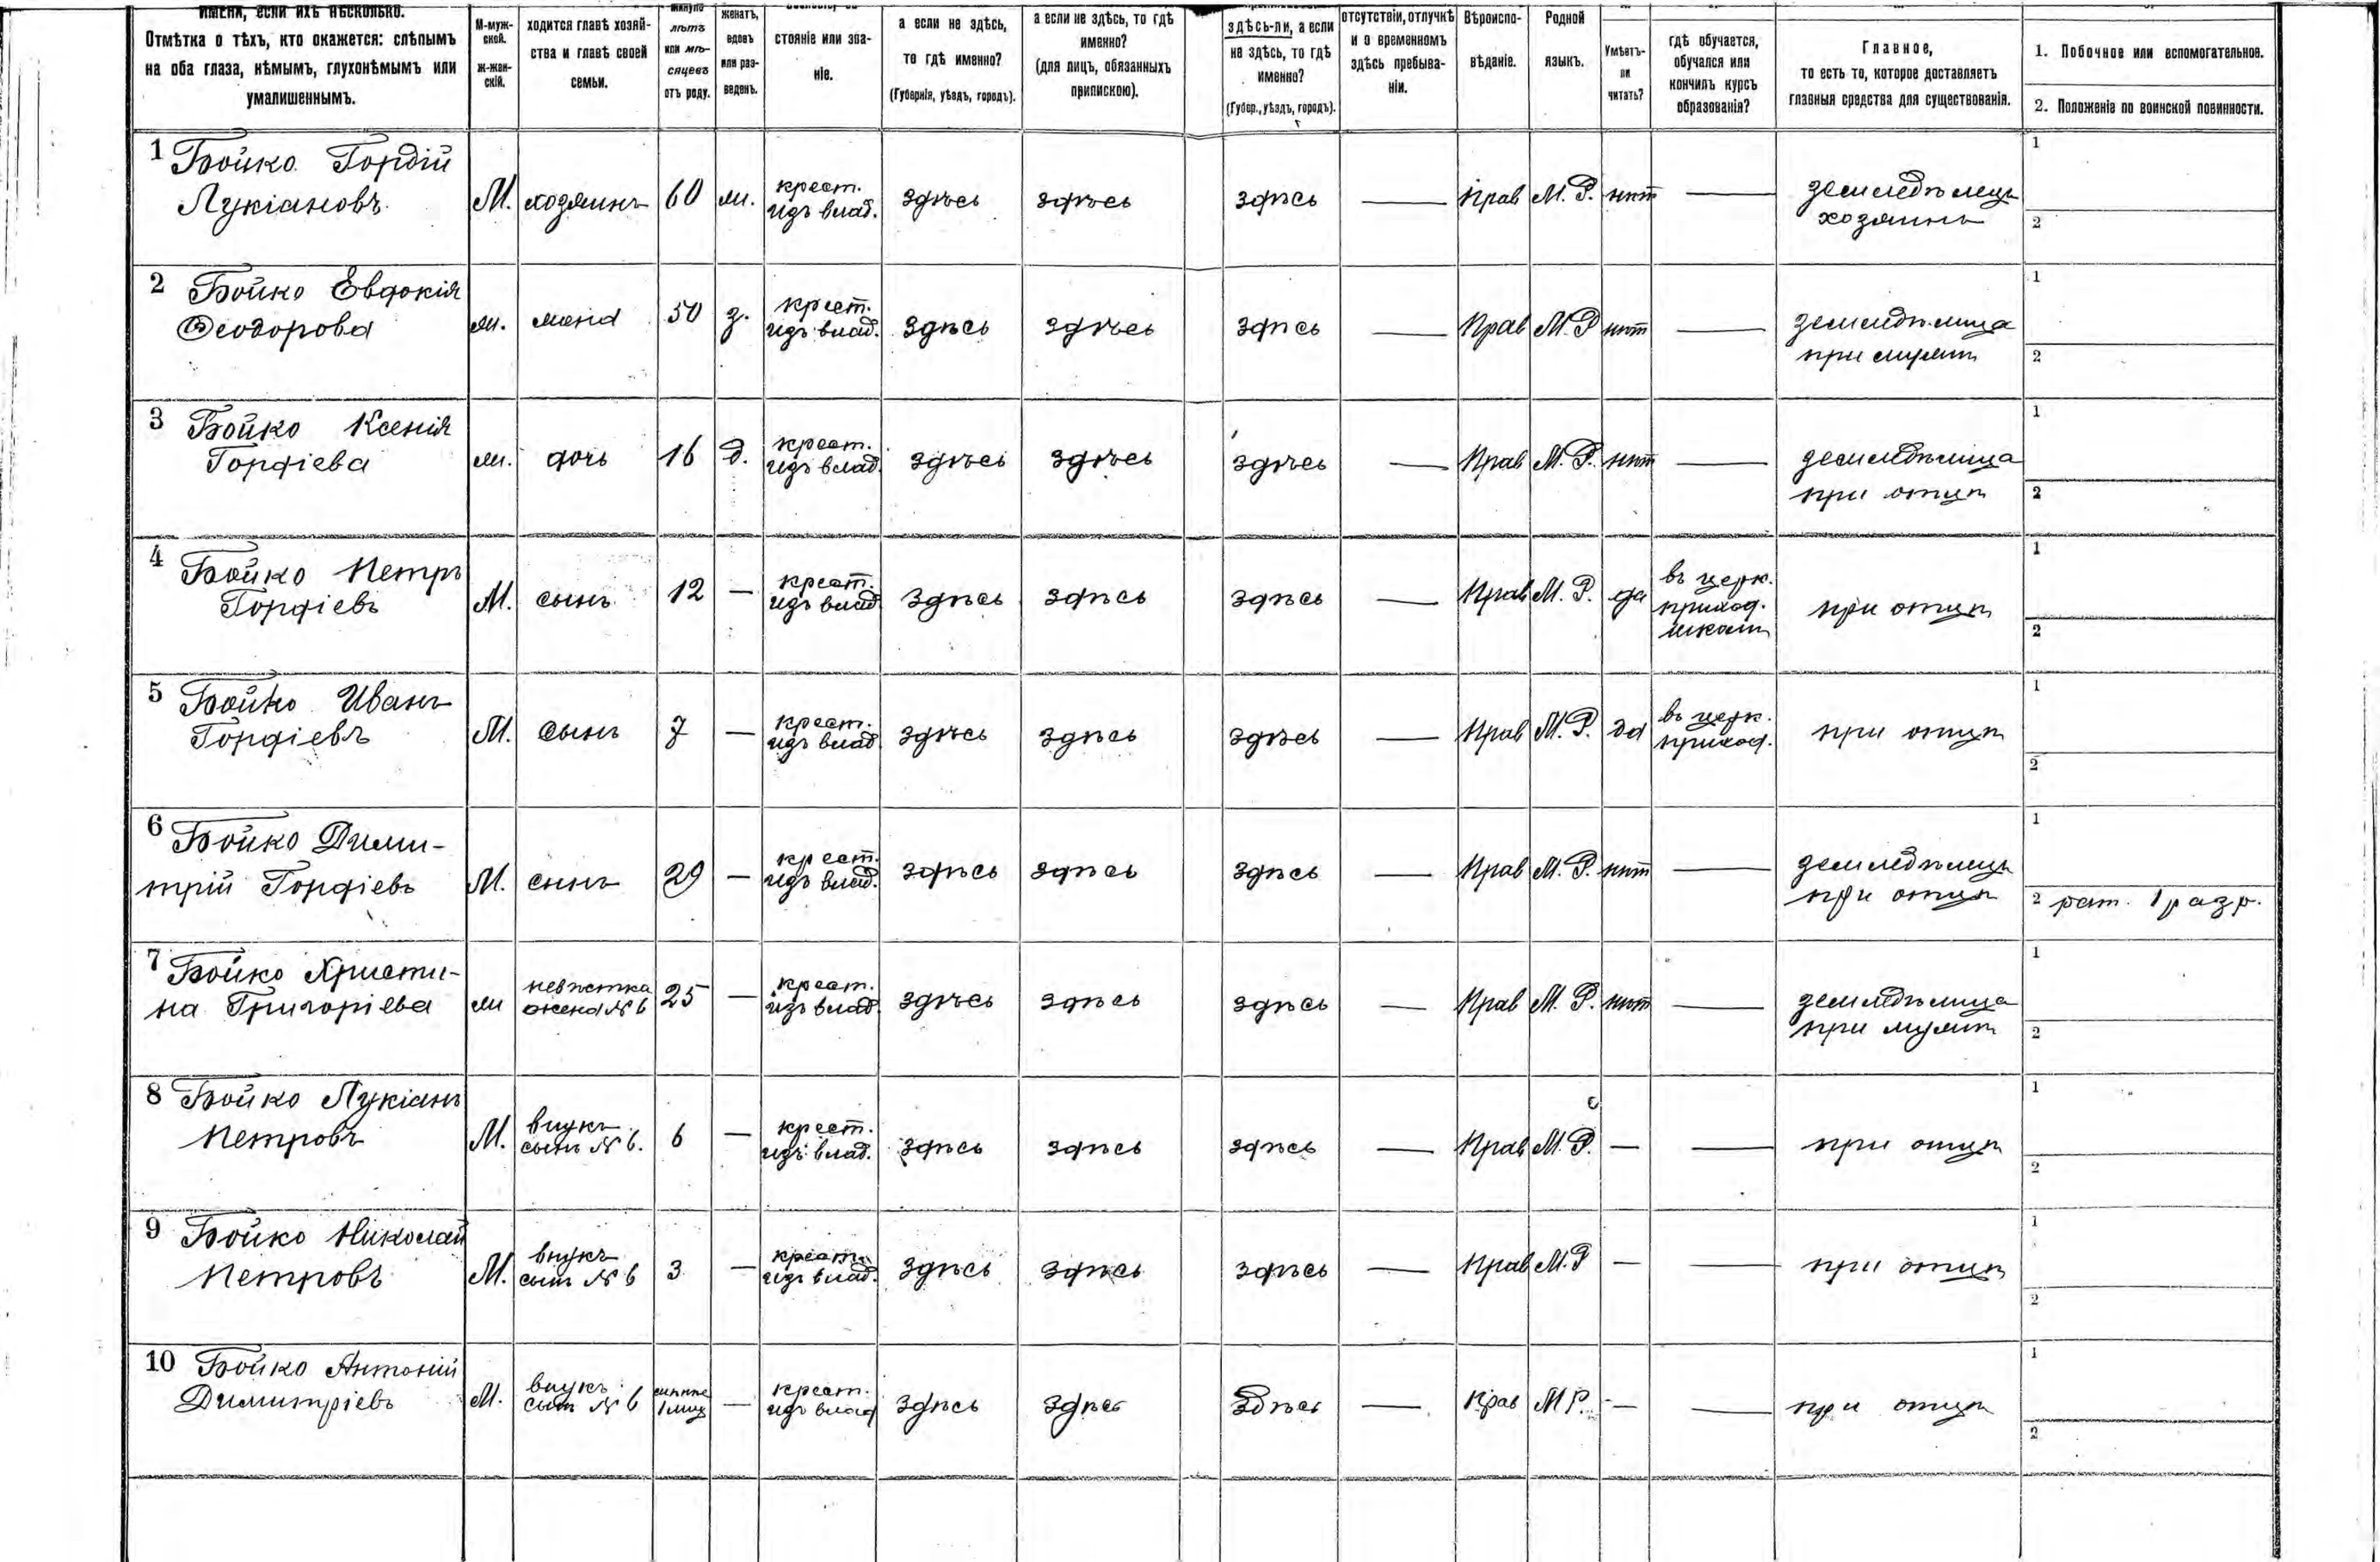 имени, если ихъ нѣсколько.
Отмѣтка о тѣхъ, кто окажется: слѣпымъ
на оба глаза, нѣмымъ, глухонѣмымъ или
умалишеннымъ.
М-муж-
ской.
ж-жен-
скій.
ходится главѣ хозяй-
ства и главѣ своей
семьи.
минуло
лѣтъ
или мѣ-
сяцевъ
отъ роду.
женатъ,
вдовъ
или раз-
веденъ.
стояніе или зва-
ніе.
а если не здѣсь,
то гдѣ именно?
(Губернія, уѣздъ, городъ).
а если не здѣсь, то гдѣ
именно?
(для лицъ, обязанныхъ
припискою).
здѣсь-ли, а если
не здѣсь, то гдѣ
именно?
(Губер., уѣздъ, городъ).
отсутствіи, отлучкѣ
и о временномъ
здѣсь пребыва-
ніи.
Вѣроиспо-
вѣданіе.
Родной
языкъ.
Умѣетъ-
ли
читать?
гдѣ обучается,
обучался или
кончилъ курсъ
образованія?
Главное,
то есть то, которое доставляетъ
главныя средства для существованія.
1. Побочное или вспомогательное.
2. Положеніе по воинской повинности.
1 Бойко Гордій
Лукіановъ
М. хозяинъ 60 ж. крест.
изъ влад. здѣсь здѣсь здѣсь — Прав М. Р. нѣт — земледѣлецъ
хозяинъ
1
2
2 Бойко Евдокія
Ѳеодорова
ж. жена 50 з. крест.
изъ влад. здѣсь здѣсь здѣсь — Прав М. Р нѣт — земледѣлица
при мужѣ
1
2
3 Бойко Ксенія
Гордіева
ж. дочь 16 д. крест.
изъ влад. здѣсь здѣсь здѣсь — Прав М. Р. нѣт — земледѣлица
при отцѣ
1
2
4 Бойко Петръ
Гордіевъ
М. сынъ 12 — крест.
изъ влад здѣсь здѣсь здѣсь — Прав М. Р. да въ церк.
приход.
школѣ
при отцѣ
1
2
5 Бойко Иванъ
Гордіевъ
М. сынъ 7 — крест.
изъ влад здѣсь здѣсь здѣсь — Прав М. Р. да въ церк.
приход.
при отцѣ
1
2
6 Бойко Дими-
трій Гордіевъ
М. сынъ 29 — крест.
изъ влад. здѣсь здѣсь здѣсь — Прав М. Р. нѣт — земледѣлецъ
при отцѣ
1
2 рат. 1 разр.
7 Бойко Христи-
на Григоріева
ж невѣстка
жена № 6 25 — крест.
изъ влад. здѣсь здѣсь здѣсь — Прав М. Р. нѣт — земледѣлица
при мужѣ
1
2
8 Бойко Лукіанъ
Петровъ
М. внукъ
сынъ № 6. 6 — крест.
изъ влад. здѣсь здѣсь здѣсь — Прав М. Р. — — при отцѣ
1
2
9 Бойко Николай
Петровъ
М. внукъ
сынъ № 6 3 — крест.
изъ влад. здѣсь здѣсь здѣсь — Прав М. Р — — при отцѣ
1
2
10 Бойко Антоній
Димитріевъ
М. внукъ
сынъ № 6 — крест.
изъ влад здѣсь здѣсь здѣсь — Прав М Р. — — при отцѣ
1
2